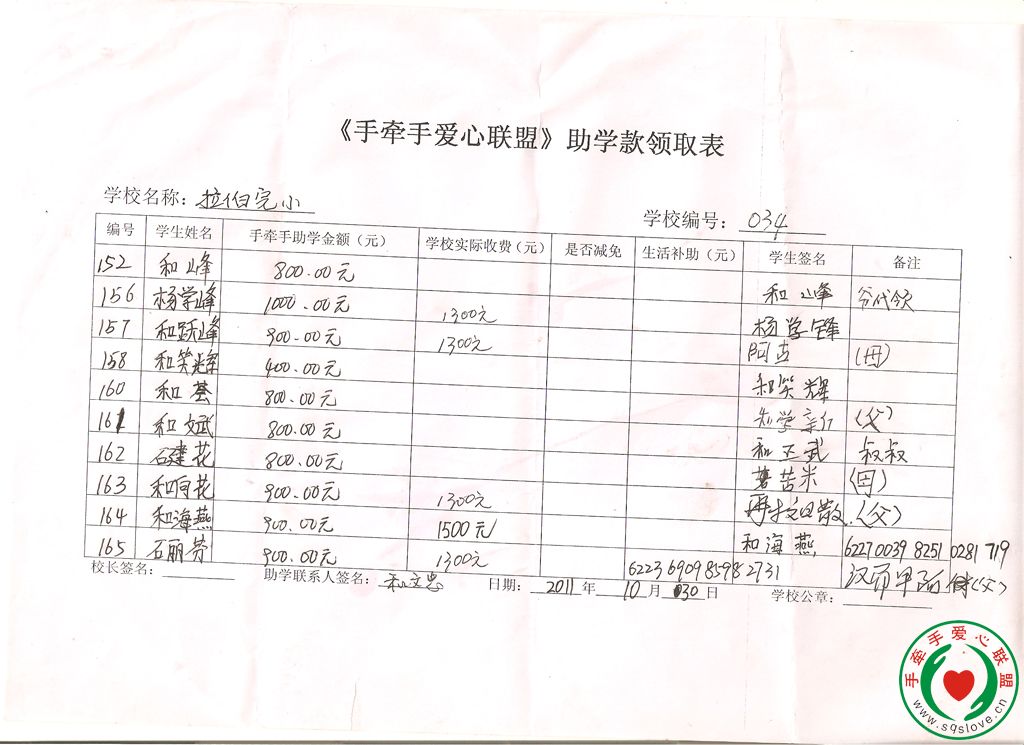 《手牵手爱心联盟》助学款领取表
学校名称：拉伯完小
学校编号：034
编号 学生姓名 手牵手助学金额（元） 学校实际收费（元） 是否减免 生活补助（元） 学生签名 备注
152 和峰 800.00元 和峰 爷代领
156 杨学峰 1000.00元 1300元 杨学锋
157 和跃峰 900.00元 1300元 阿 (母)
158 和笑辉 400.00元 和笑辉
160 和荟 800.00元 和学 (父)
161 和斌 800.00元 和武 叔叔
162 石建花 800.00元 苦米 (母)
163 和向花 900.00元 1300元 (父)
164 和海燕 900.00元 1500元 和海燕 6227 0039 8251 0281 719
165 石丽芬 900.00元 1300元 6223 6909 8598 2731 (父)
校长签名： 助学联系人签名：和文忠 日期：2011年10月30日 学校公章：
手牵手爱心联盟
www.sqslove.cn